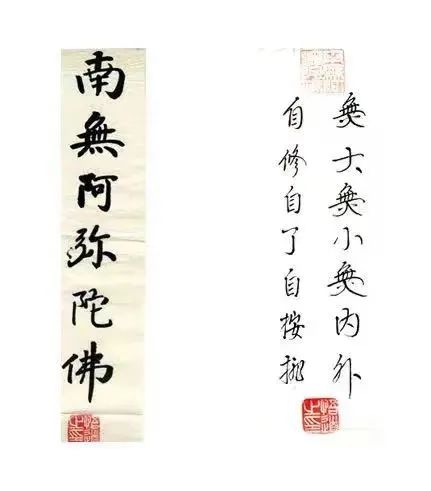 南無阿弥陀佛
無大無小無内外
自修自了自按排